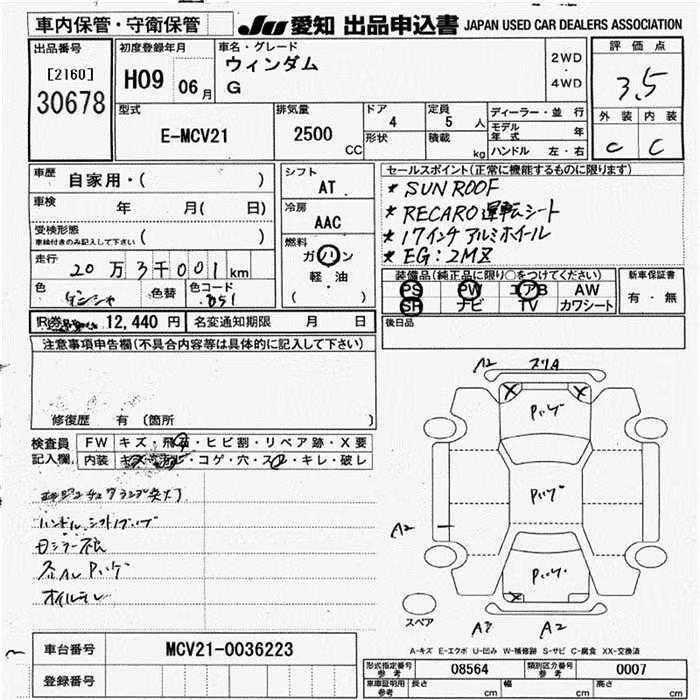 車内保管・守衛保管
JU 愛知 出品申込書 JAPAN USED CAR DEALERS ASSOCIATION
出品番号
[2160]
30678
初度登録年月
H09 06月
車名・グレード
ウィンダム
G
2WD
・
4WD
評価点
3.5
外装 内装
C C
型式
E-MCV21
排気量
2500 CC
ドア
4
形状
定員
5 人
積載
kg
ディーラー・並行
モデル年式 年
ハンドル 左・右
車歴 自家用・( )
車検 年 月( 日)
受検形態
車検付きのみ記入して下さい ( )
走行 20万3千001km
色 色替 色コード
051
シフト
AT
冷房
AAC
燃料
ガソリン
軽・油
( )
セールスポイント(正常に機能するものに限ります)
★ SUNROOF
★ RECARO運転シート
★ 17インチ アルミホイール
★ EG:2MZ
装備品(純正品に限り○をつけてください)
PS PW エアB AW
SR ナビ TV カワシート
新車保証書
有・無
後日品
R券 12,440 円
名変通知期限 月 日
注意事項申告欄(不具合内容等は具体的に記入して下さい)
修復歴 有(箇所 )
検査員
記入欄
FW キズ・飛石・ヒビ割・リペア跡・X要
内装 キズ・コゲ・穴・スレ・キレ・破レ
エンジンチェックランプ点灯
オイルモレ
A2
A2
A2
スペア
A-キズ E-エクボ U-凹み W-補修跡 S-サビ C-腐食 XX-交換済
車台番号 MCV21-0036223
登録番号
形式指定番号
参考
08564
類別区分番号
参考
0007
車庫証明用
参考
長さ cm 幅 cm 高さ cm